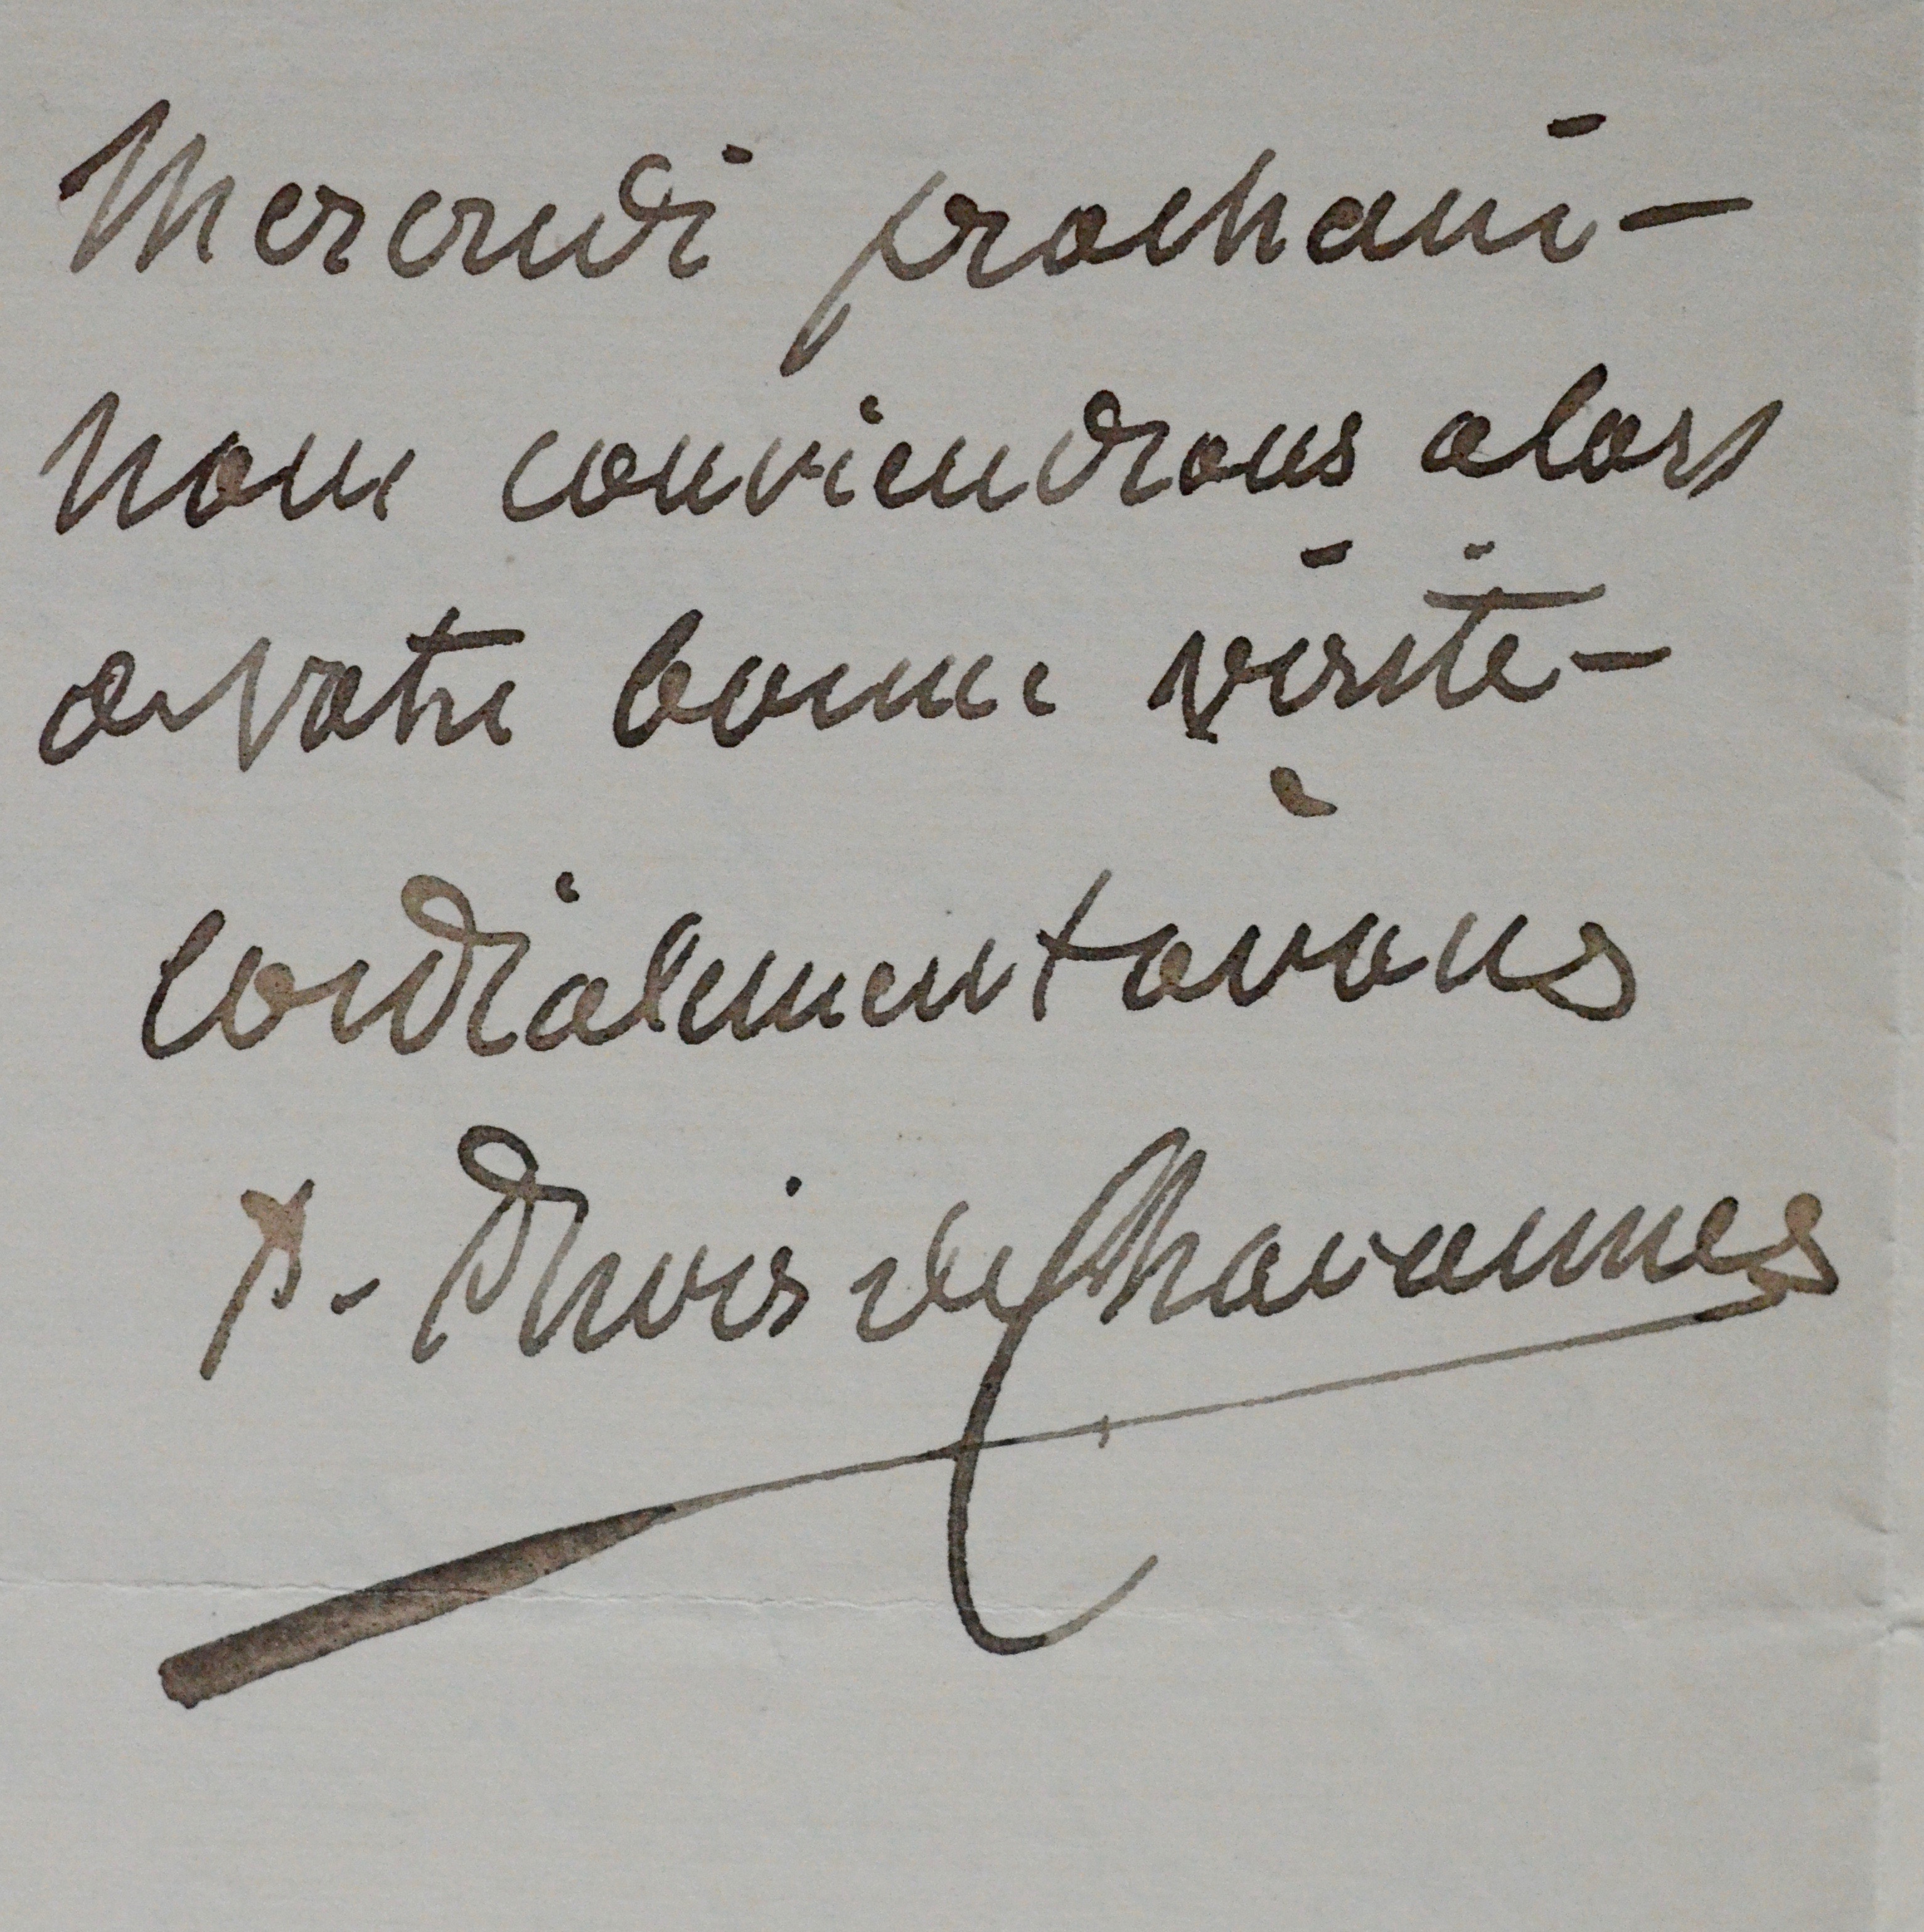 Mercredi prochain –
nous conviendrons alors
de votre bonne visite –
Cordialement à vous
P. Puvis de Chavannes